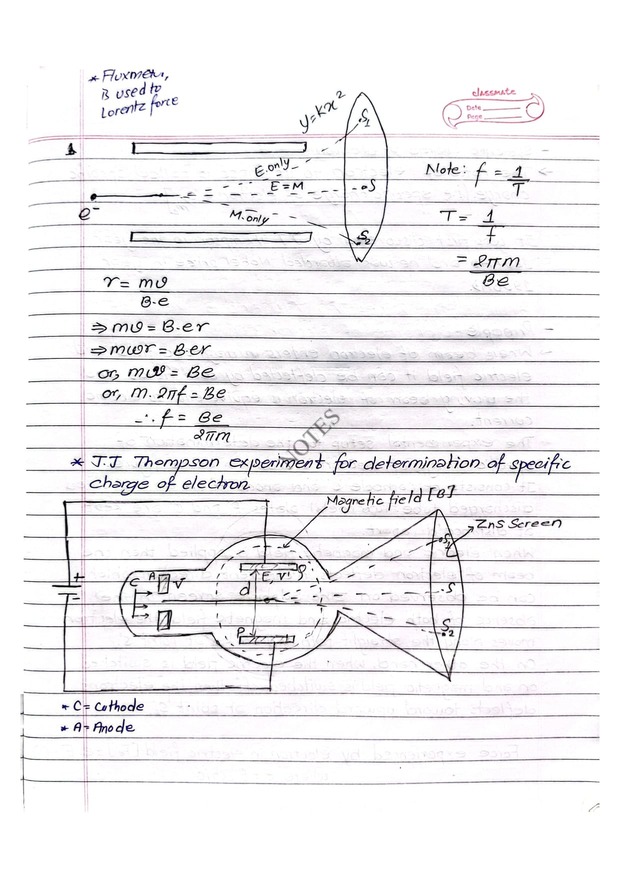 * Fluxmen,
B used to
Lorentz force
classmate
Date
Page
y=kx²
S₁
E.only
E=M
S
M.only
S₂
e⁻
Note: f = 1/T
T = 1/f
= 2πm/Be
r = mv/B.e
⇒ mv = B.er
⇒ mωr = B.er
or, mω = Be
or, m.2πf = Be
∴ f = Be/2πm
NOTES
* J.J Thompson experiment for determination of specific
charge of electron
Magnetic field [B]
ZnS Screen
S₁
C A V
E, V'
Q
d
S
P
S₂
+
-
* C = Cathode
* A = Anode